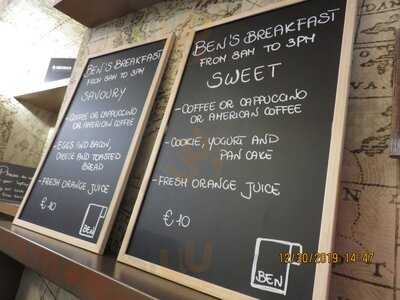 BEN'S BREAKFAST
FROM 8AM TO 3PM
SAVOURY
- COFFEE OR CAPPUCCINO
OR AMERICAN COFFEE
- EGGS AND BACON,
CHEESE AND TOASTED
BREAD
- FRESH ORANGE JUICE
€ 10
BEN
BEN'S BREAKFAST
FROM 8AM TO 3PM
SWEET
- COFFEE OR CAPPUCCINO
OR AMERICAN COFFEE
- COOKIE, YOGURT AND
PAN CAKE
- FRESH ORANGE JUICE
€ 10
BEN
12/30/2019 14:47